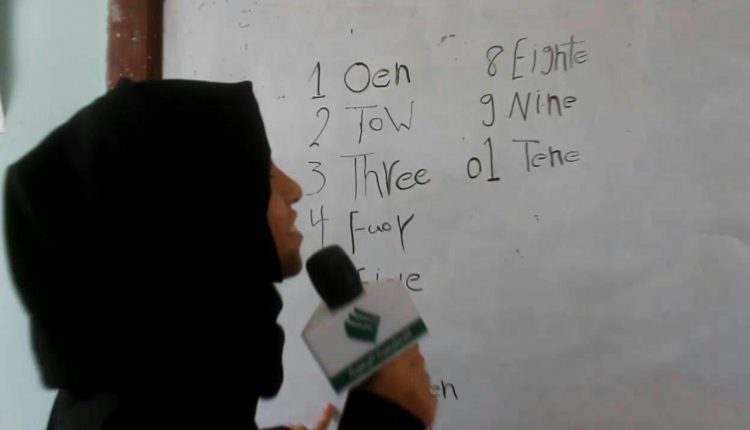 1 Oen
2 ToW
3 Three
4 Fuor
8 Eighte
9 Nine
01 Tene